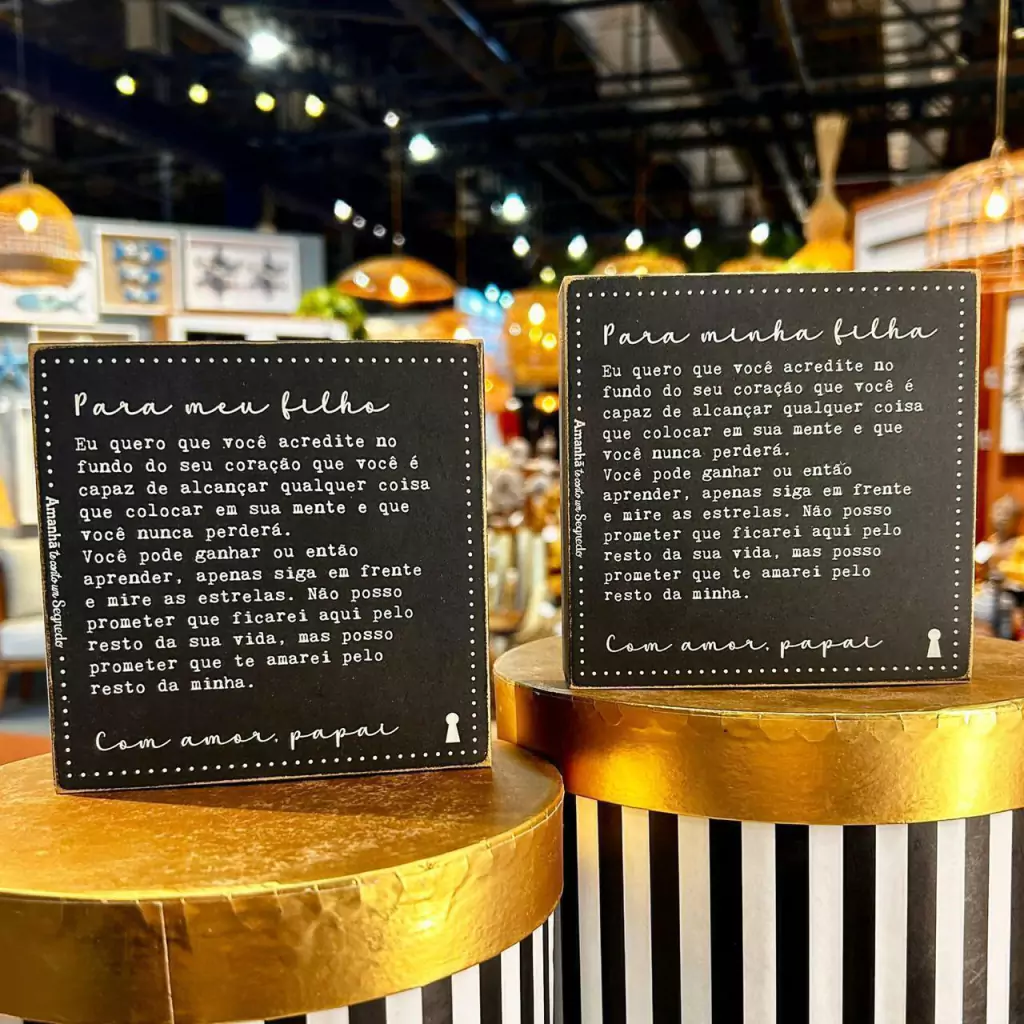 Para meu filho
Eu quero que você acredite no
fundo do seu coração que você é
capaz de alcançar qualquer coisa
que colocar em sua mente e que
você nunca perderá.
Você pode ganhar ou então
aprender, apenas siga em frente
e mire as estrelas. Não posso
prometer que ficarei aqui pelo
resto da sua vida, mas posso
prometer que te amarei pelo
resto da minha.
Com amor, papai
Amanhã te conto um Segredo
Para minha filha
Eu quero que você acredite no
fundo do seu coração que você é
capaz de alcançar qualquer coisa
que colocar em sua mente e que
você nunca perderá.
Você pode ganhar ou então
aprender, apenas siga em frente
e mire as estrelas. Não posso
prometer que ficarei aqui pelo
resto da sua vida, mas posso
prometer que te amarei pelo
resto da minha.
Com amor, papai
Amanhã te conto um Segredo